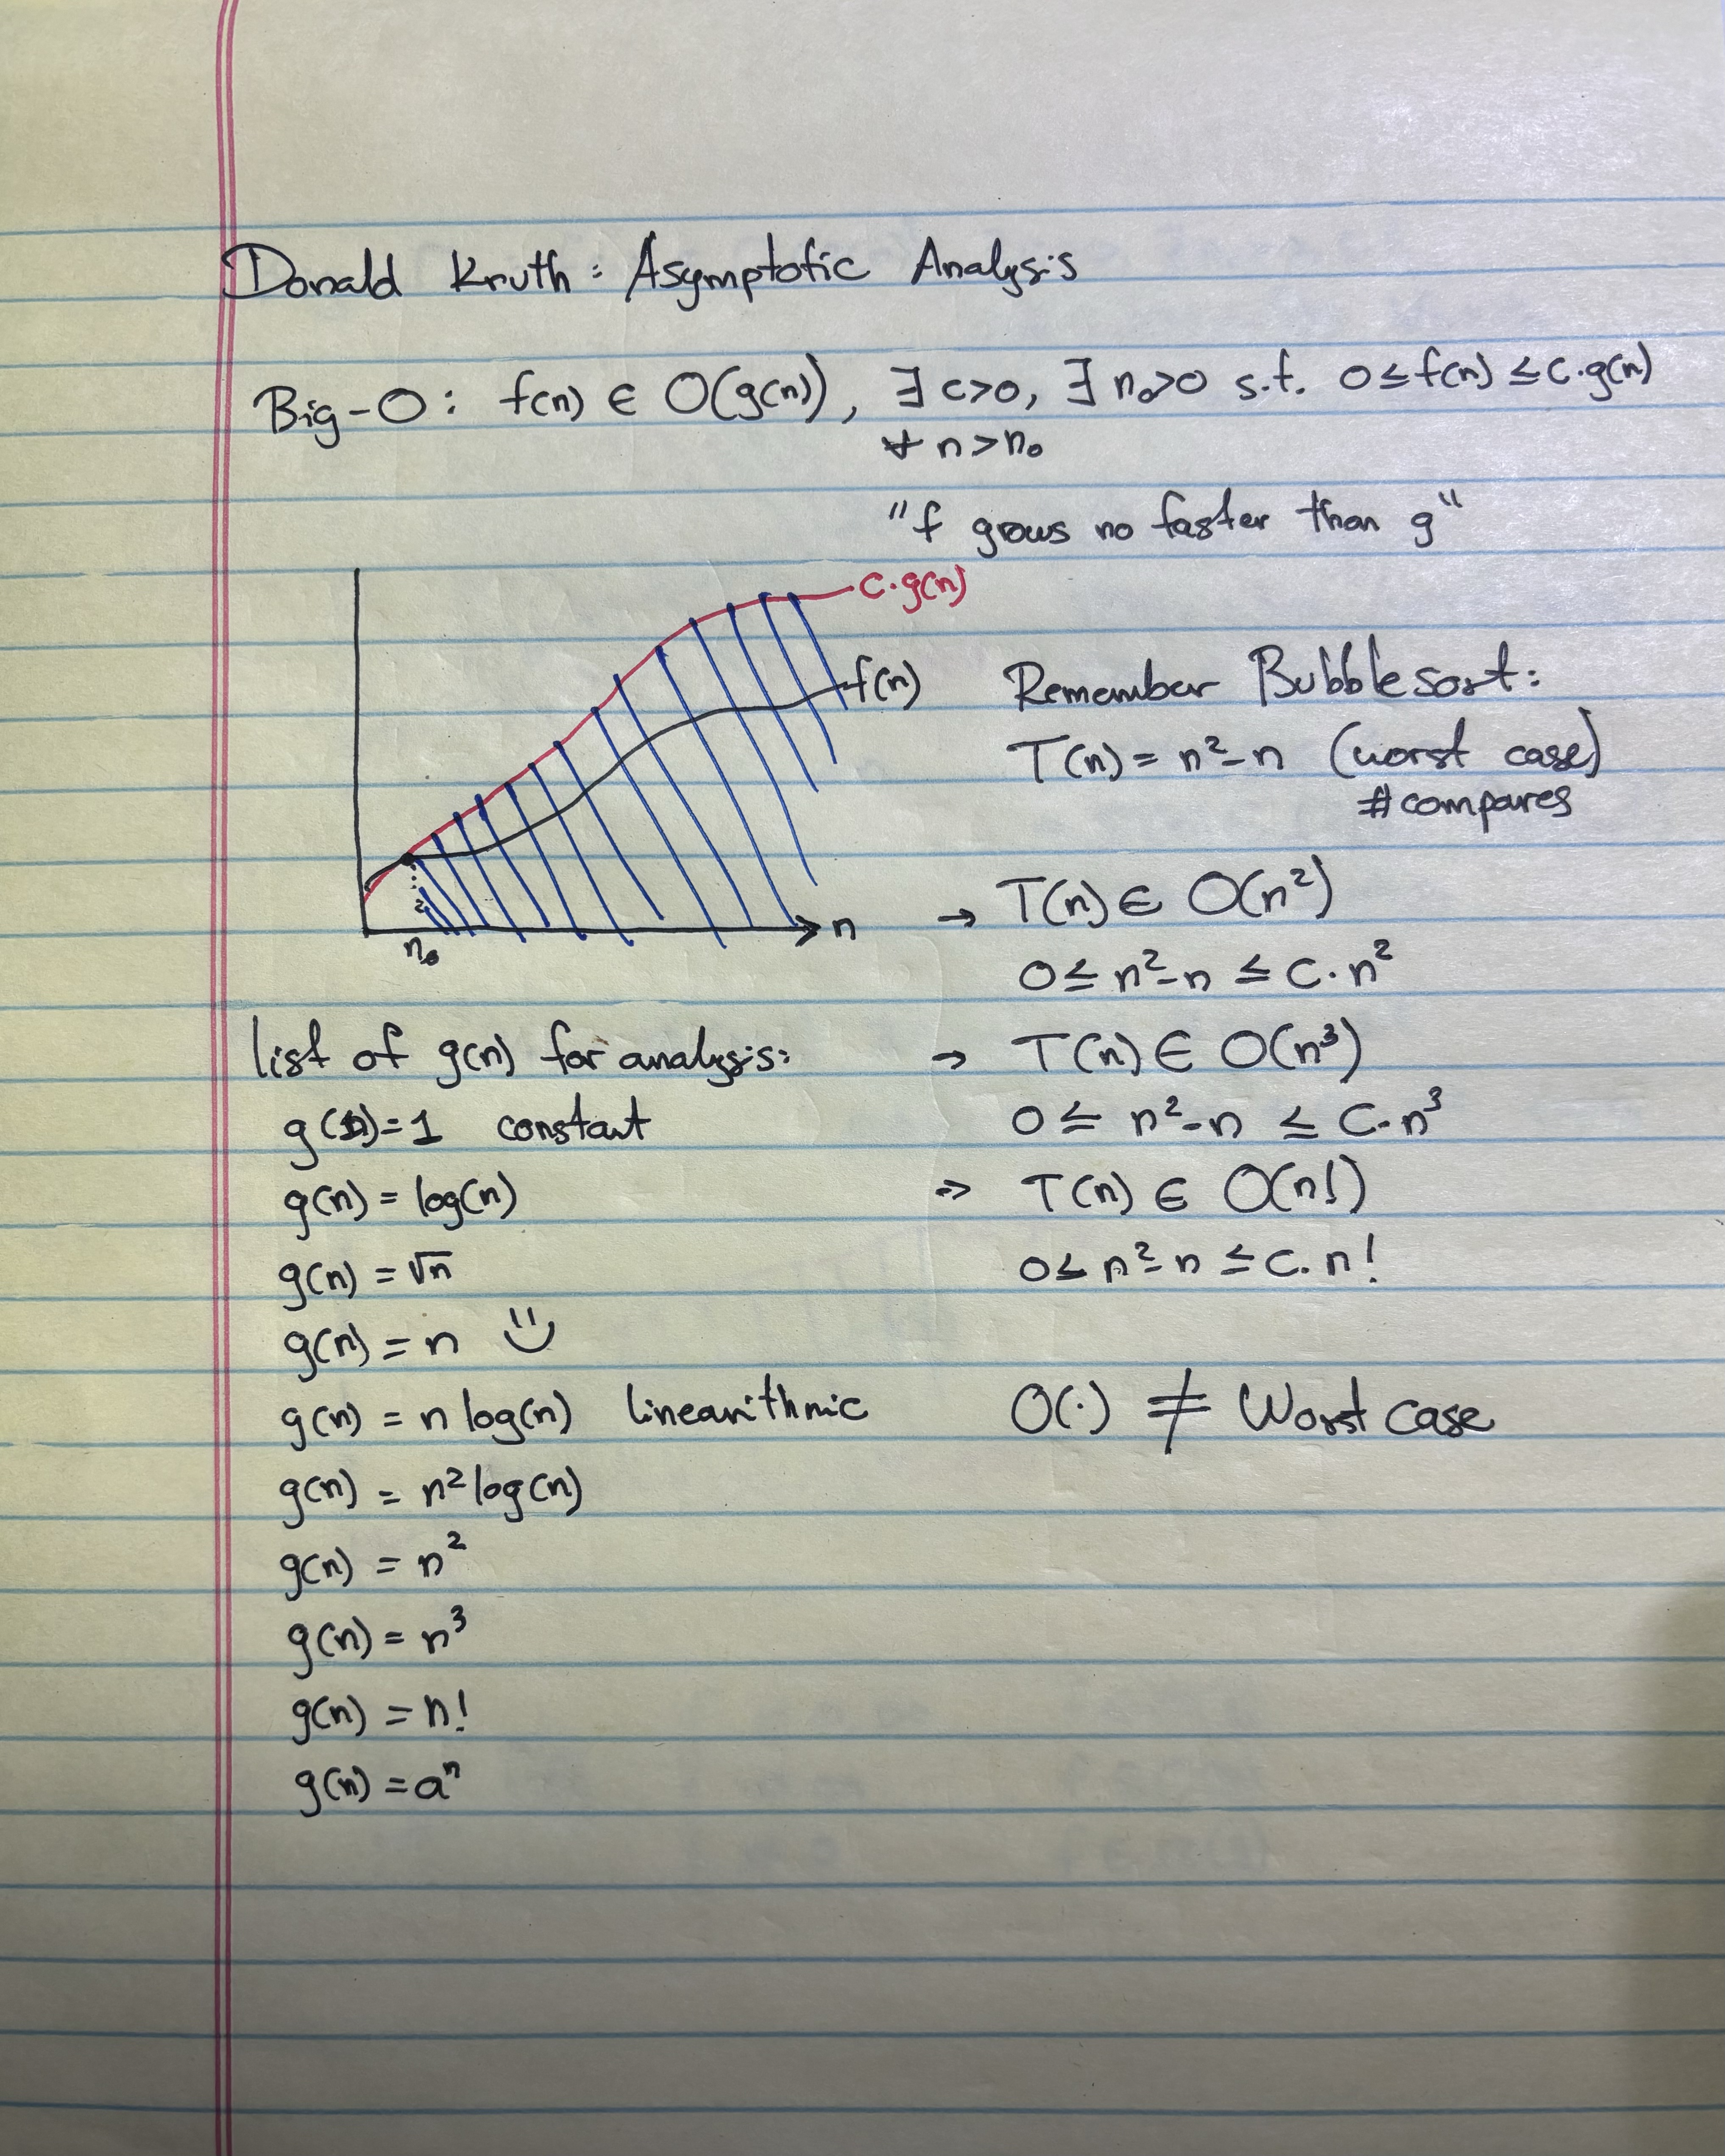 Donald Knuth: Asymptotic Analysis
Big-O: f(n) ∈ O(g(n)), ∃ c>0, ∃ n₀>0 s.t. 0≤f(n)≤c·g(n)
∀ n>n₀
"f grows no faster than g"
c·g(n)
f(n)
n
n₀
Remember Bubblesort:
T(n) = n²-n (worst case)
#compares
→ T(n) ∈ O(n²)
0≤ n²-n ≤ C·n²
→ T(n) ∈ O(n³)
0 ≤ n²-n ≤ C·n³
→ T(n) ∈ O(n!)
0≤ n²-n ≤ C·n!
O(·) ≠ Worst case
list of g(n) for analysis:
g(n)=1 constant
g(n) = log(n)
g(n) = √n
g(n) = n
g(n) = n log(n) linearithmic
g(n) = n² log(n)
g(n) = n²
g(n) = n³
g(n) = n!
g(n) = aⁿ